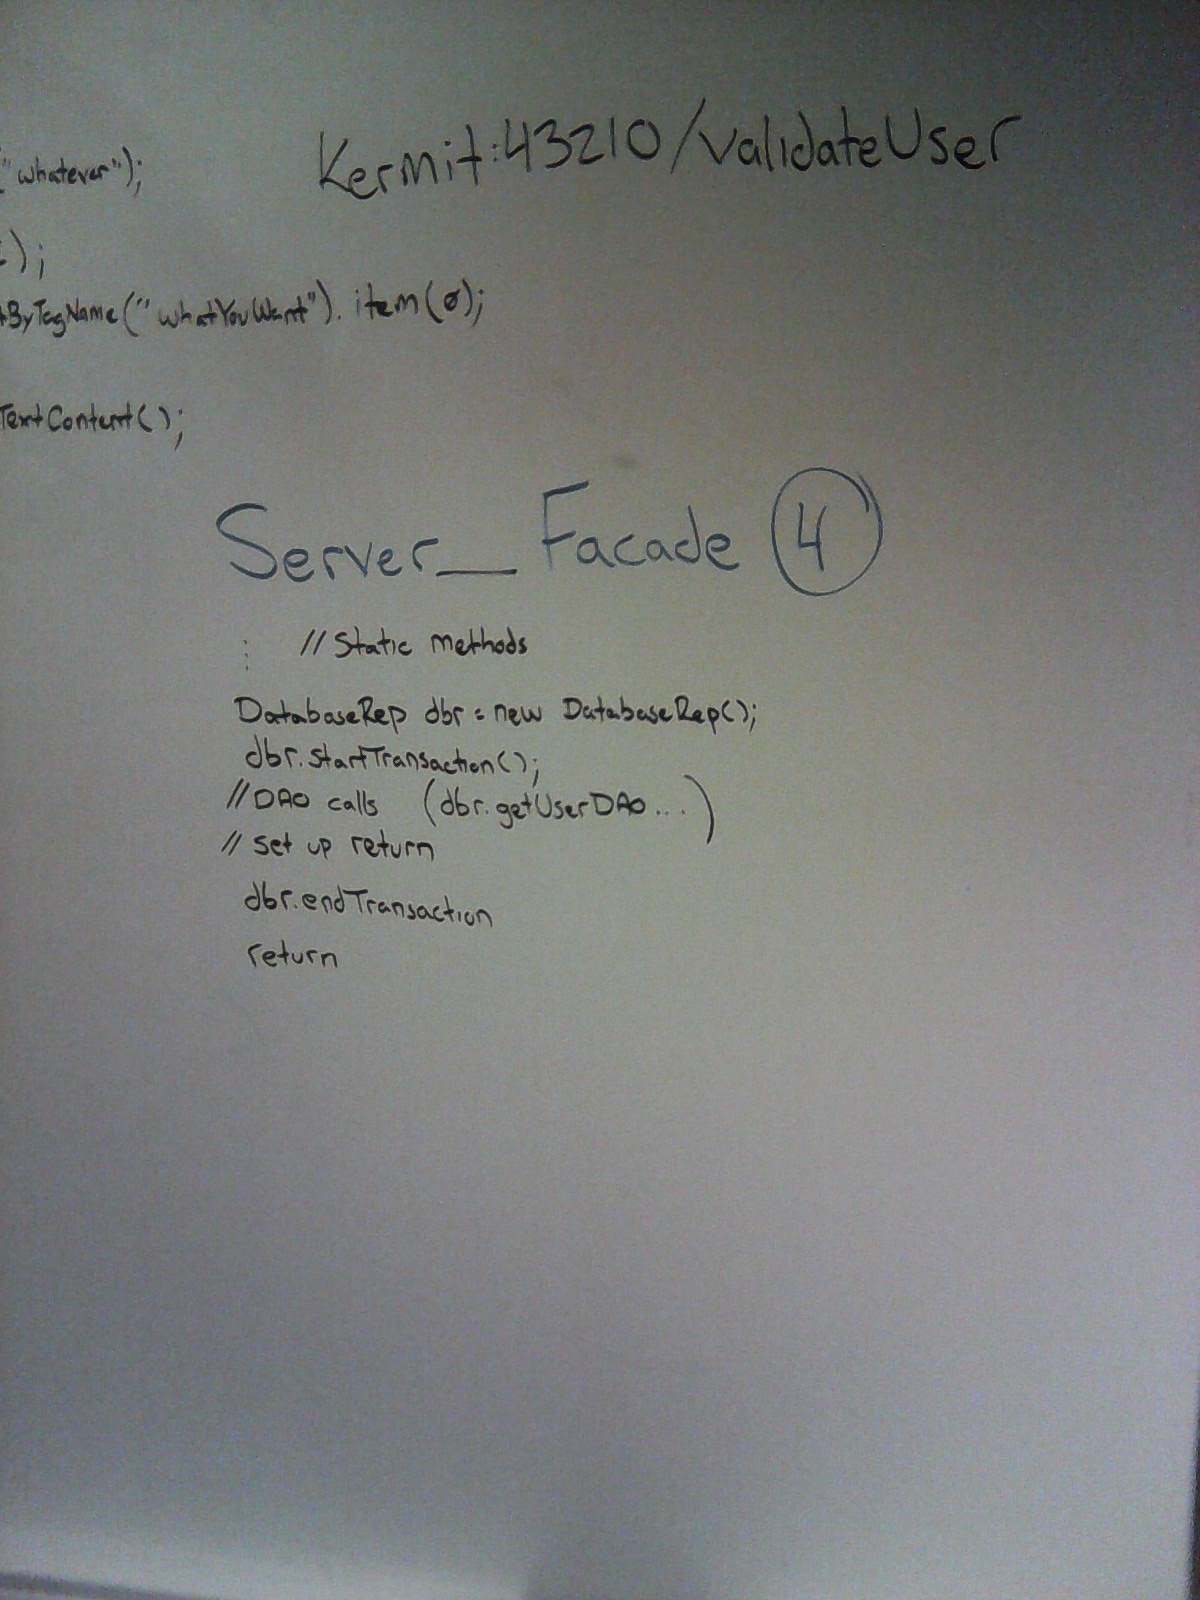 Kermit:43210/validateUser
("whatever");
);
tByTagName("whatYouWant").item(0);
TextContent();
Server_Facade 4
// Static methods
DatabaseRep dbr = new DatabaseRep();
dbr.startTransaction();
// DAO calls (dbr.getUserDAO...)
// set up return
dbr.endTransaction
return